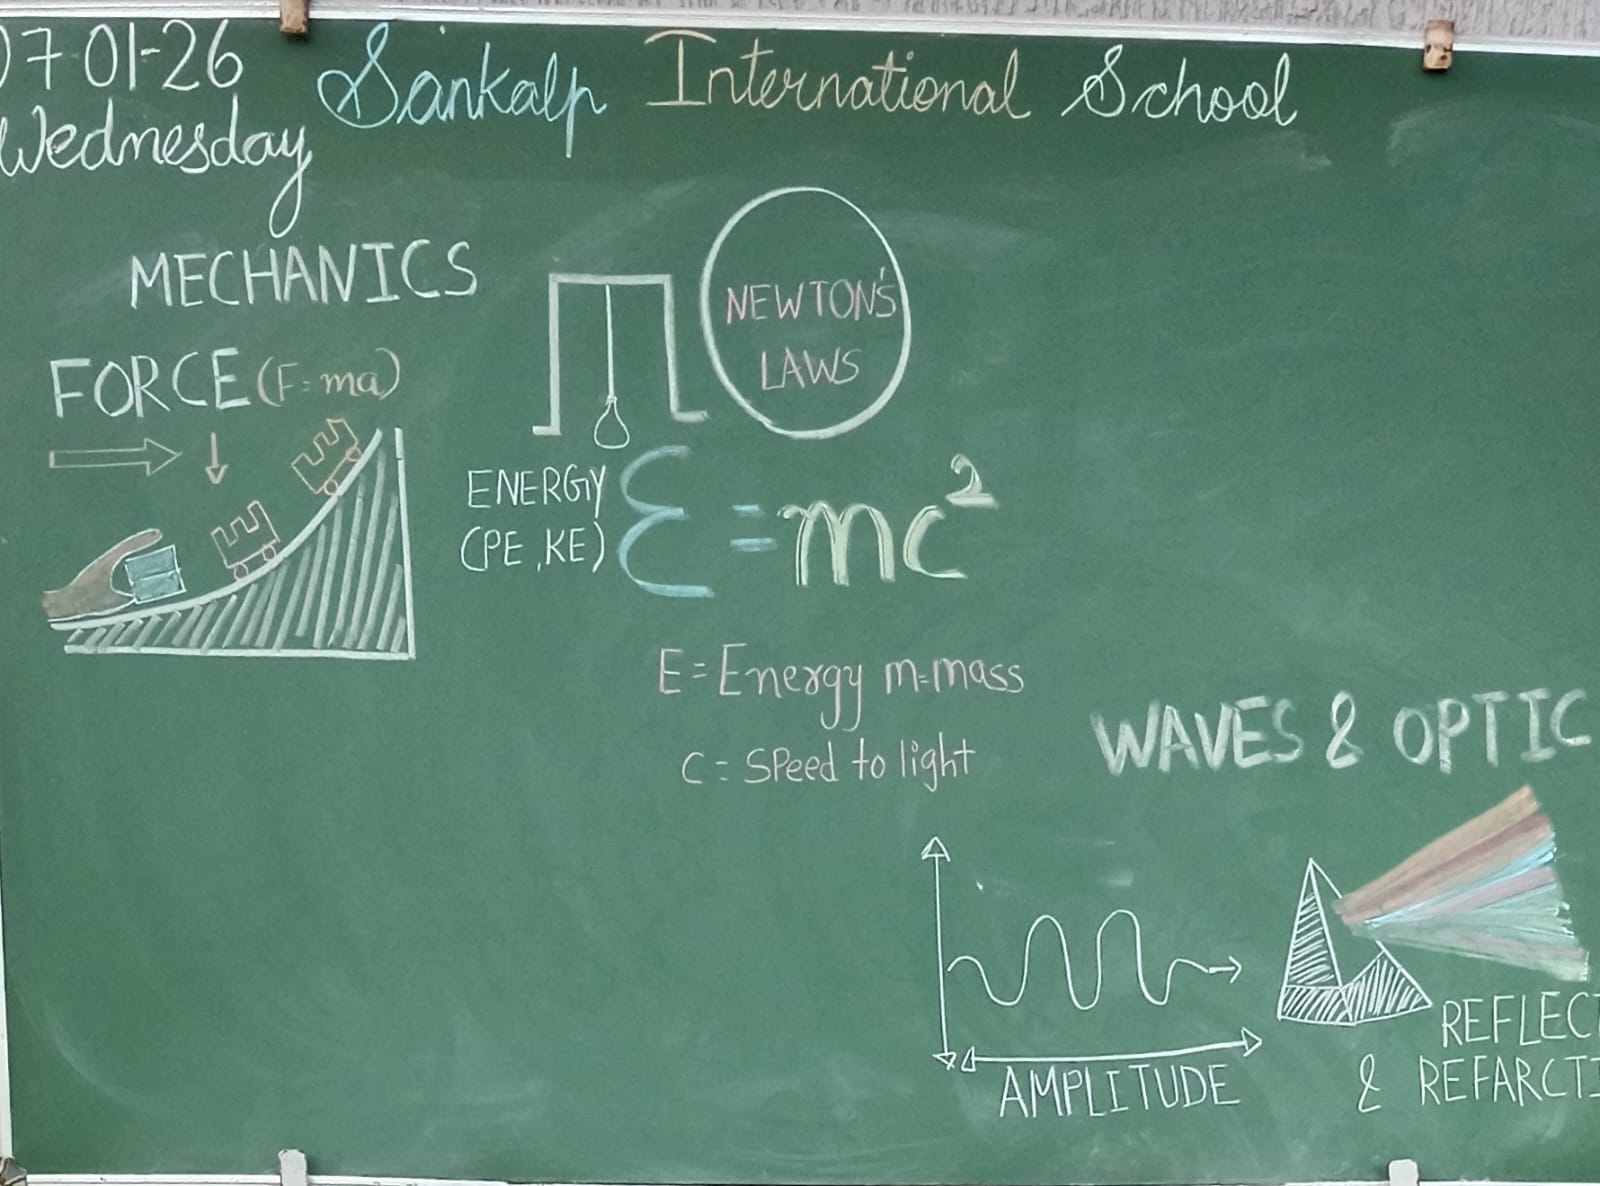 07-01-26
Wednesday
Sankalp International School
MECHANICS
FORCE (F=ma)
NEWTON'S
LAWS
ENERGY
(PE, KE)
E=mc²
E=Energy m=mass
C=Speed to light
WAVES & OPTIC
AMPLITUDE
REFLECT
& REFARCTI